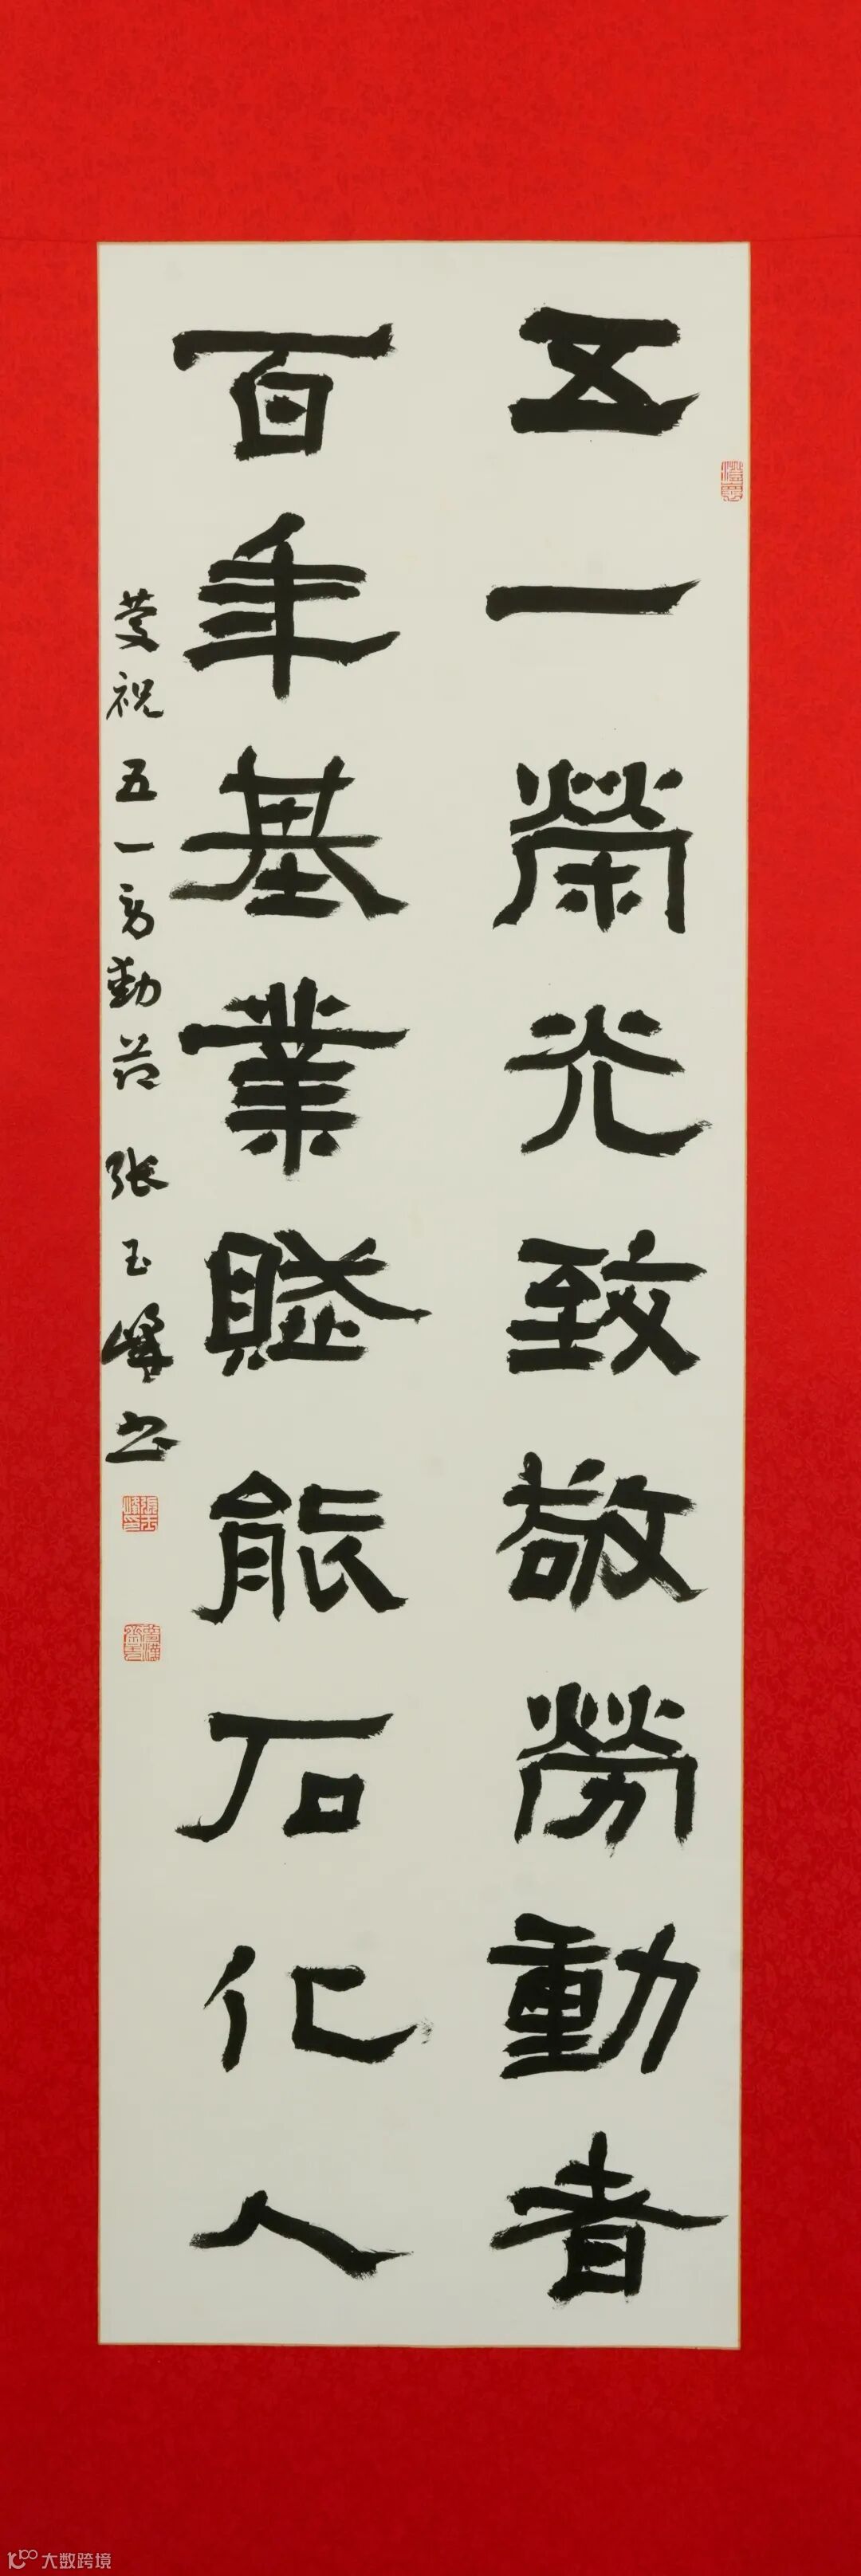 五一榮光致敬勞動者
百年基業賦能石化人
慶祝五一勞動節 張玉峰书
張玉峰印
大数跨境